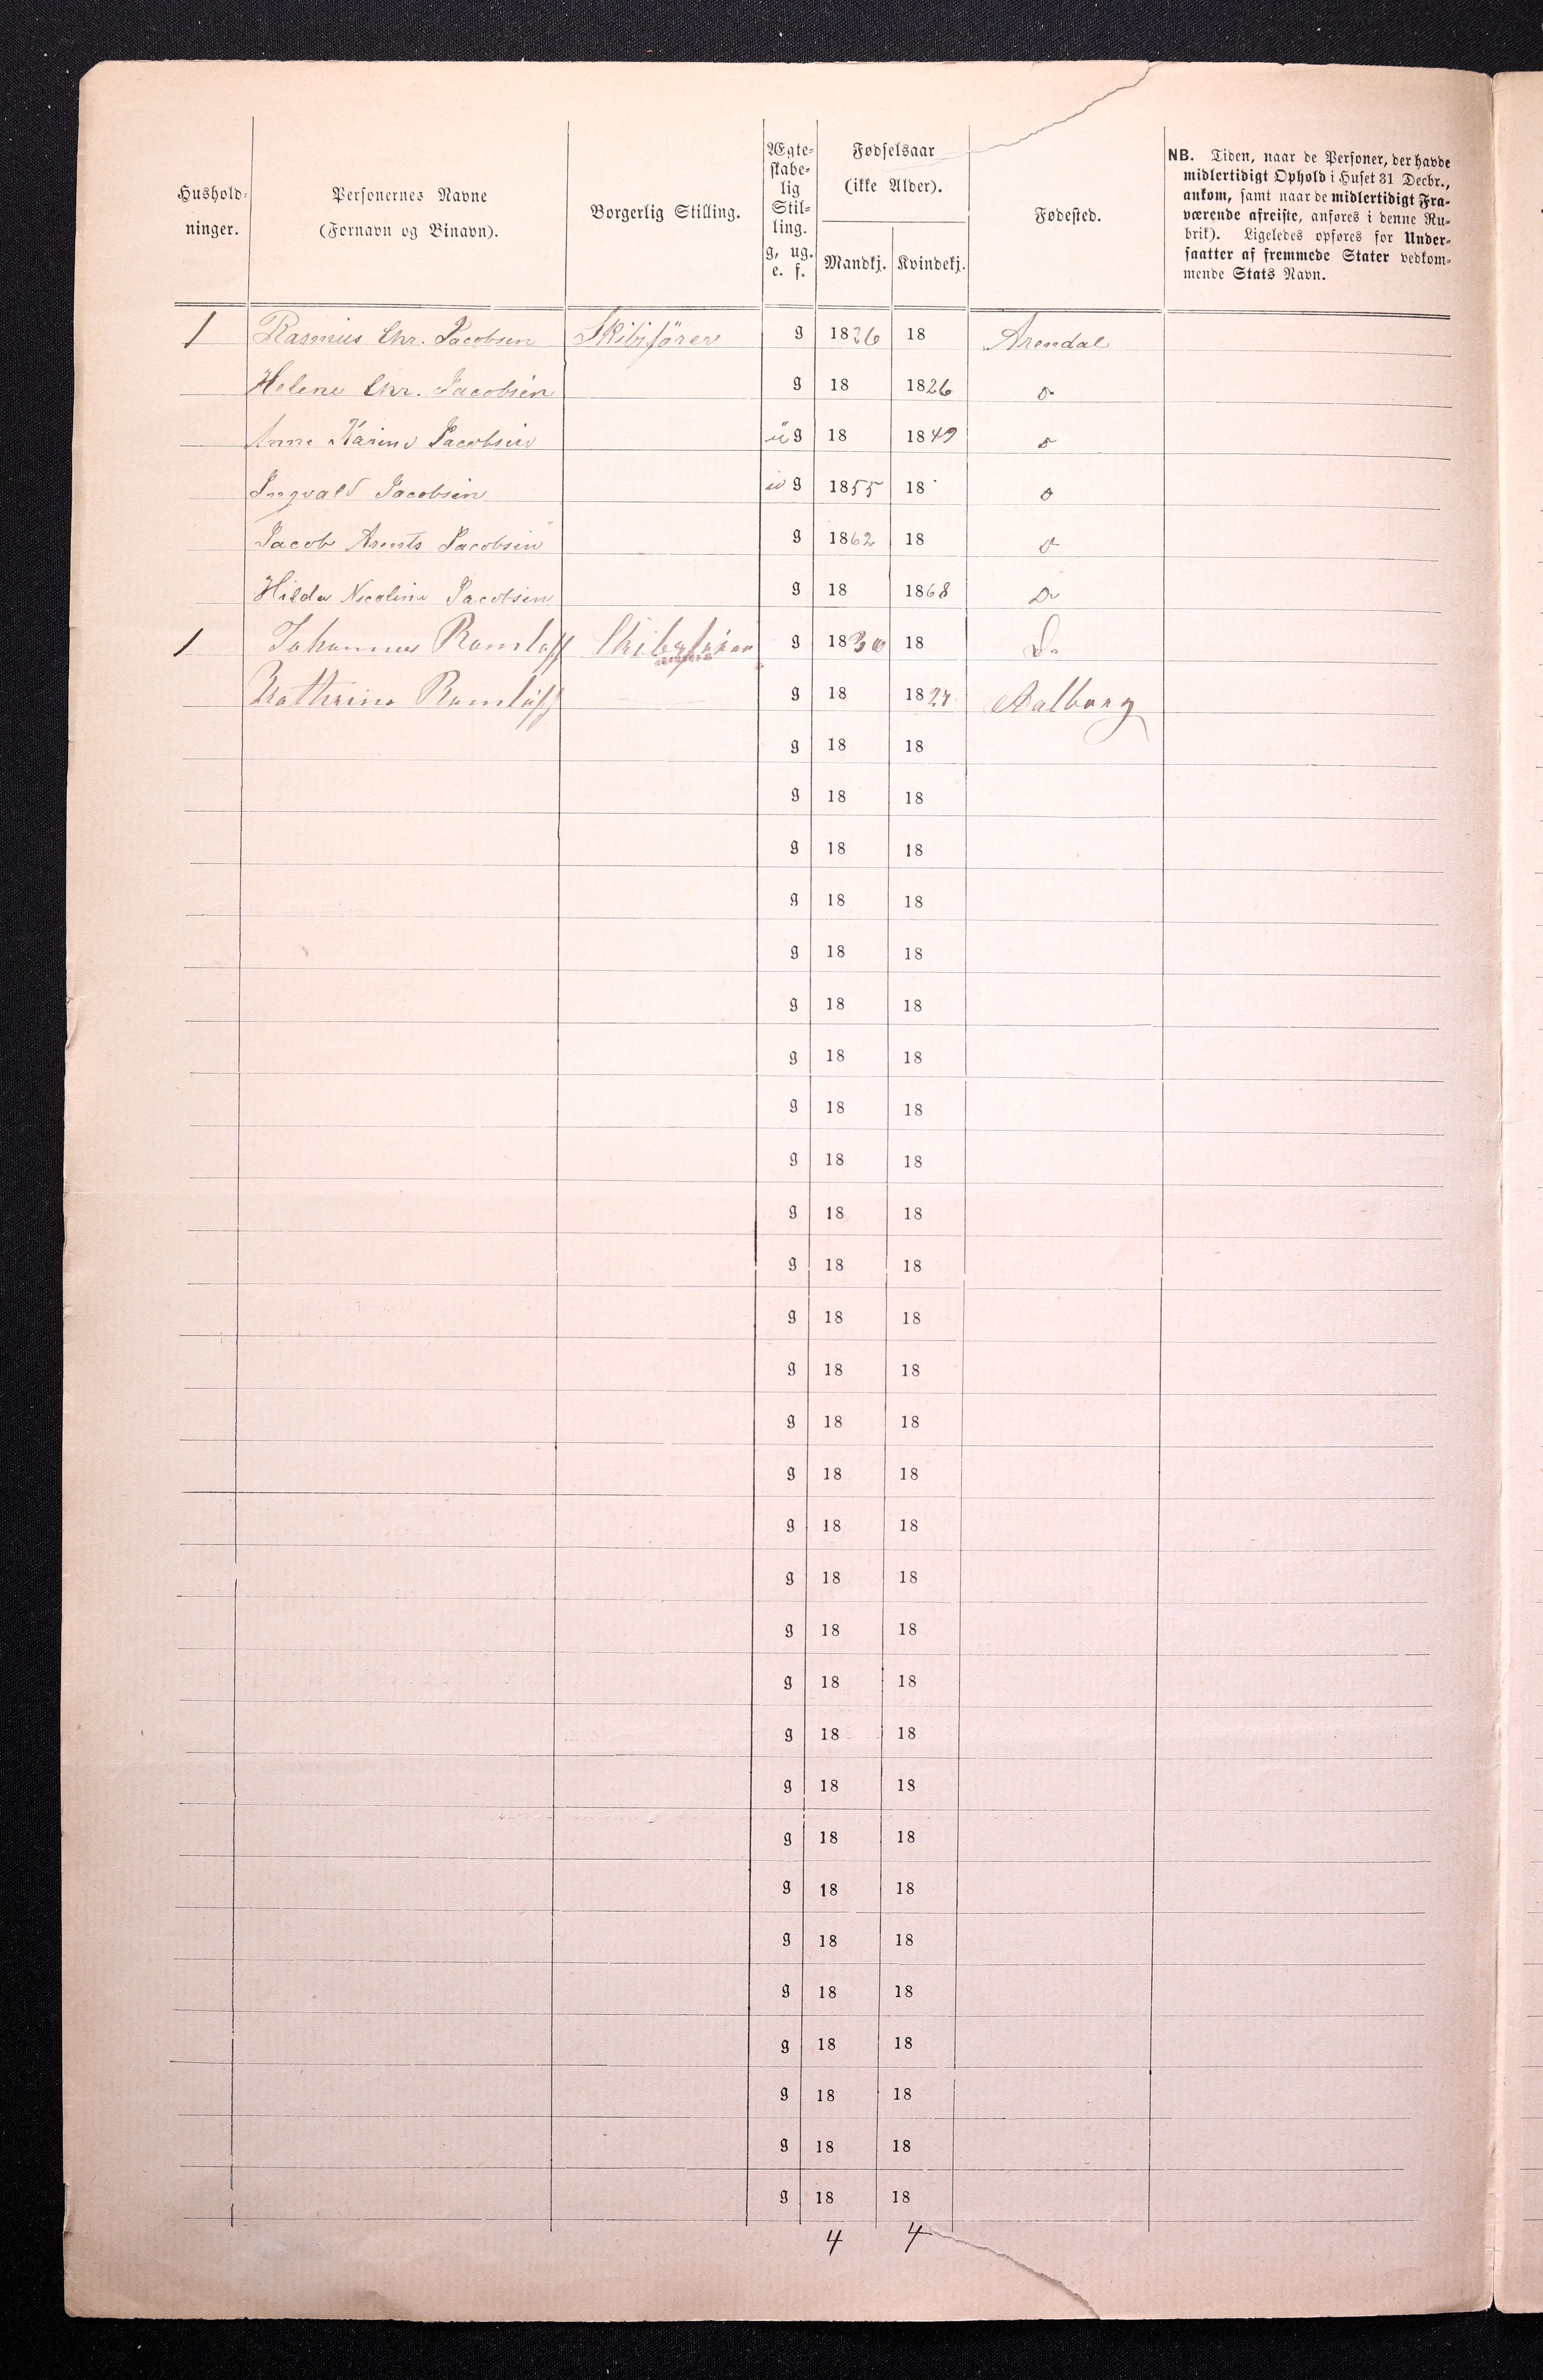 Hushold-
ninger.
Personernes Navne
(Fornavn og Binavn).
Borgerlig Stilling.
Ægte-
skabe-
lig
Stil-
ling.
g, ug.
e. f.
Fødselsaar
(ikke Alder).
Mandkj. Kvindekj.
Fødested.
NB. Tiden, naar de Personer, der havde
midlertidigt Ophold i Huset 31 Decbr.,
ankom, samt naar de midlertidigt Fra-
værende afreiste, anføres i denne Ru-
brik). Ligeledes opføres for Under-
saatter af fremmede Stater vedkom-
mende Stats Navn.
1 Rasmus Chr. Jacobsen Skibsförer g 1826 18 Arendal
Helene Chr. Jacobsen g 18 1826 do
Anne Karine Jacobsen ug 18 1849 do
Ingvald Jacobsen ug 1855 18 do
Jacob Arents Jacobsen g 1862 18 do
Hilda Nicoline Jacobsen g 18 1868 Do
1 Johannes Romlöff Skibsförer g 1830 18 Do
Kathrine Romlöff g 18 1827 Aalborg
g 18 18
g 18 18
g 18 18
g 18 18
g 18 18
g 18 18
g 18 18
g 18 18
g 18 18
g 18 18
g 18 18
g 18 18
g 18 18
g 18 18
g 18 18
g 18 18
g 18 18
g 18 18
g 18 18
g 18 18
g 18 18
g 18 18
g 18 18
g 18 18
g 18 18
g 18 18
g 18 18
g 18 18
g 18 18
4 4